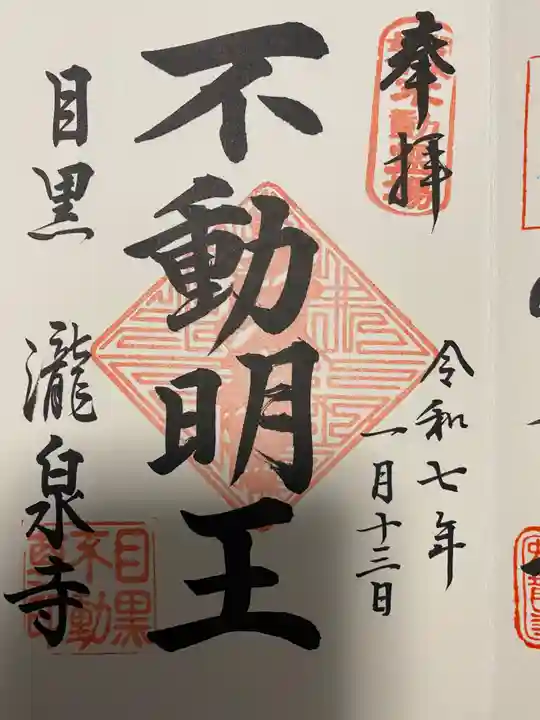 奉拝
令和七年
一月十三日
不動明王
目黒 瀧泉寺
目黒
不動